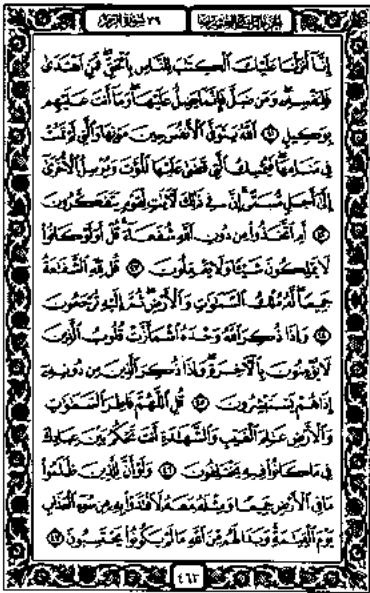 الجزء الرابع والعشرون ٣٩ سورة الزمر
إِنَّا أَنزَلْنَا عَلَيْكَ الْكِتَٰبَ لِلنَّاسِ بِالْحَقِّ فَمَنِ اهْتَدَىٰ
فَلِنَفْسِهِ وَمَن ضَلَّ فَإِنَّمَا يَضِلُّ عَلَيْهَا وَمَا أَنتَ عَلَيْهِم
بِوَكِيلٍ ٤١ اللَّهُ يَتَوَفَّى الْأَنفُسَ حِينَ مَوْتِهَا وَالَّتِي لَمْ تَمُتْ
فِي مَنَامِهَا فَيُمْسِكُ الَّتِي قَضَىٰ عَلَيْهَا الْمَوْتَ وَيُرْسِلُ الْأُخْرَىٰ
إِلَىٰ أَجَلٍ مُّسَمًّى إِنَّ فِي ذَٰلِكَ لَآيَٰتٍ لِّقَوْمٍ يَتَفَكَّرُونَ
٤٢ أَمِ اتَّخَذُوا مِن دُونِ اللَّهِ شُفَعَاءَ قُلْ أَوَلَوْ كَانُوا
لَا يَمْلِكُونَ شَيْئًا وَلَا يَعْقِلُونَ ٤٣ قُل لِّلَّهِ الشَّفَٰعَةُ
جَمِيعًا لَّهُ مُلْكُ السَّمَٰوَٰتِ وَالْأَرْضِ ثُمَّ إِلَيْهِ تُرْجَعُونَ
٤٤ وَإِذَا ذُكِرَ اللَّهُ وَحْدَهُ اشْمَأَزَّتْ قُلُوبُ الَّذِينَ
لَا يُؤْمِنُونَ بِالْآخِرَةِ وَإِذَا ذُكِرَ الَّذِينَ مِن دُونِهِ
إِذَا هُمْ يَسْتَبْشِرُونَ ٤٥ قُلِ اللَّهُمَّ فَاطِرَ السَّمَٰوَٰتِ
وَالْأَرْضِ عَٰلِمَ الْغَيْبِ وَالشَّهَٰدَةِ أَنتَ تَحْكُمُ بَيْنَ عِبَادِكَ
فِي مَا كَانُوا فِيهِ يَخْتَلِفُونَ ٤٦ وَلَوْ أَنَّ لِلَّذِينَ ظَلَمُوا
مَا فِي الْأَرْضِ جَمِيعًا وَمِثْلَهُ مَعَهُ لَافْتَدَوْا بِهِ مِن سُوءِ الْعَذَابِ
يَوْمَ الْقِيَٰمَةِ وَبَدَا لَهُم مِّنَ اللَّهِ مَا لَمْ يَكُونُوا يَحْتَسِبُونَ ٤٧
٤٦٣